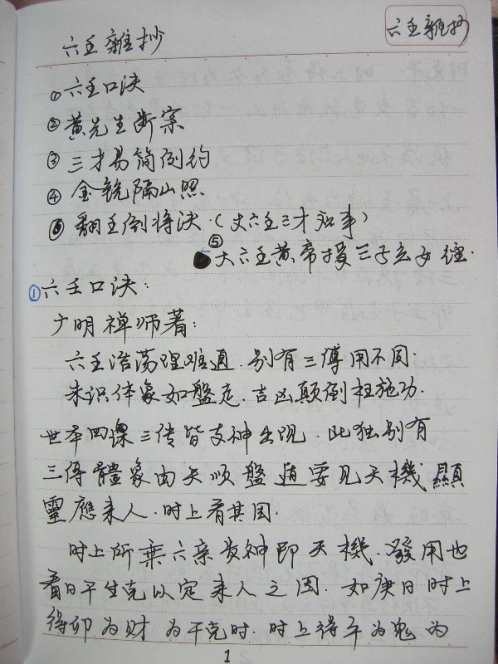 六壬雜抄
六壬雜抄
①六壬口决
②黄先生断案
③三才易简例约
④金镜隔山照
⑥翻壬倒将决.(大六壬三才知事)
⑤大六壬黄帝授三子玄女经.
①六壬口决:
广明禅师著:
六壬浩荡理难通.别有三傳用不同.
未识体象如盤走.吉凶颠倒枉施功.
世本四课三传皆支神出现.此独别有
三传體象由天顺盤 要见天機顯
靈應来人.时上看其因.
时上所乘六亲贵神即天機.發用也
看日干生克以定来人之因.如庚日时上
得卯为财为干克时.时上得午为鬼为
1